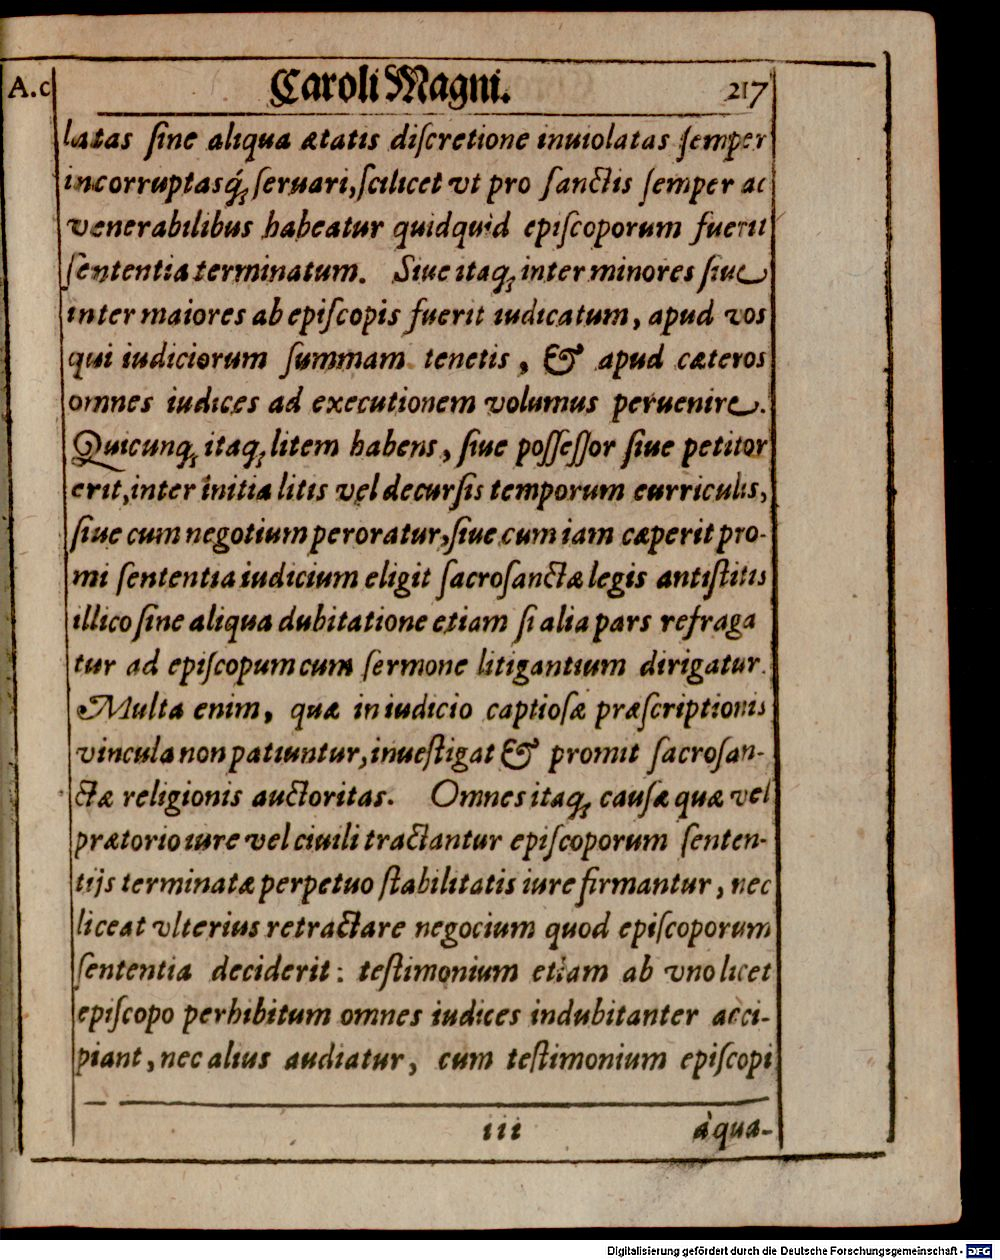 A.c
Caroli Magni.
217
latas ſine aliqua ætatis diſcretione inuiolatas ſemper
incorruptasq́; ſeruari, ſcilicet vt pro ſanctis ſemper ac
venerabilibus habeatur quidquid epiſcoporum fuerit
ſententia terminatum. Siue itaq; inter minores ſiue
inter maiores ab epiſcopis fuerit iudicatum, apud vos
qui iudiciorum ſummam tenetis, & apud cæteros
omnes iudices ad executionem volumus peruenire.
Quicunq; itaq; litem habens, ſiue poſſeſſor ſiue petitor
erit, inter initia litis vel decurſis temporum curriculis,
ſiue cum negotium peroratur, ſiue cum iam cæperit pro-
mi ſententia iudicium eligit ſacroſanctæ legis antiſtitis
illico ſine aliqua dubitatione etiam ſi alia pars refraga
tur ad epiſcopum cum ſermone litigantium dirigatur.
Multa enim, quæ in iudicio captioſæ præſcriptionis
vincula non patiuntur, inueſtigat & promit ſacroſan-
ctæ religionis auctoritas. Omnes itaq; cauſæ quæ vel
prætorio iure vel ciuili tractantur epiſcoporum ſenten-
tijs terminatæ perpetuo ſtabilitatis iure firmantur, nec
liceat vlterius retractare negocium quod epiſcoporum
ſententia deciderit: teſtimonium etiam ab vno licet
epiſcopo perhibitum omnes iudices indubitanter acci-
piant, nec alius audiatur, cum teſtimonium epiſcopi
iii
à qua-
Digitalisierung gefördert durch die Deutsche Forschungsgemeinschaft - DFG